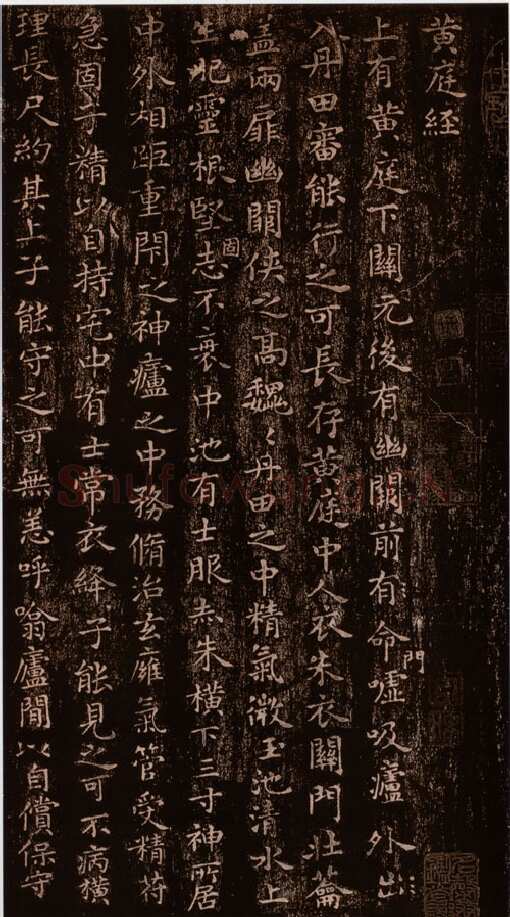 黄庭経
上有黄庭下關元後有幽闕前有命門嘘吸廬外出
入丹田審能行之可長存黄庭中人衣朱衣關門壯蘥
盖兩扉幽闕俠之高巍〻丹田之中精氣微玉池清水上
生肥靈根堅固志不衰中池有士服赤朱橫下三寸神所居
中外相距重閇之神廬之中務脩治玄廱氣管受精符
急固子精以自持宅中有士常衣絳子能見之可不病橫
理長尺約其上子能守之可無恙呼噏廬閒以自償保守